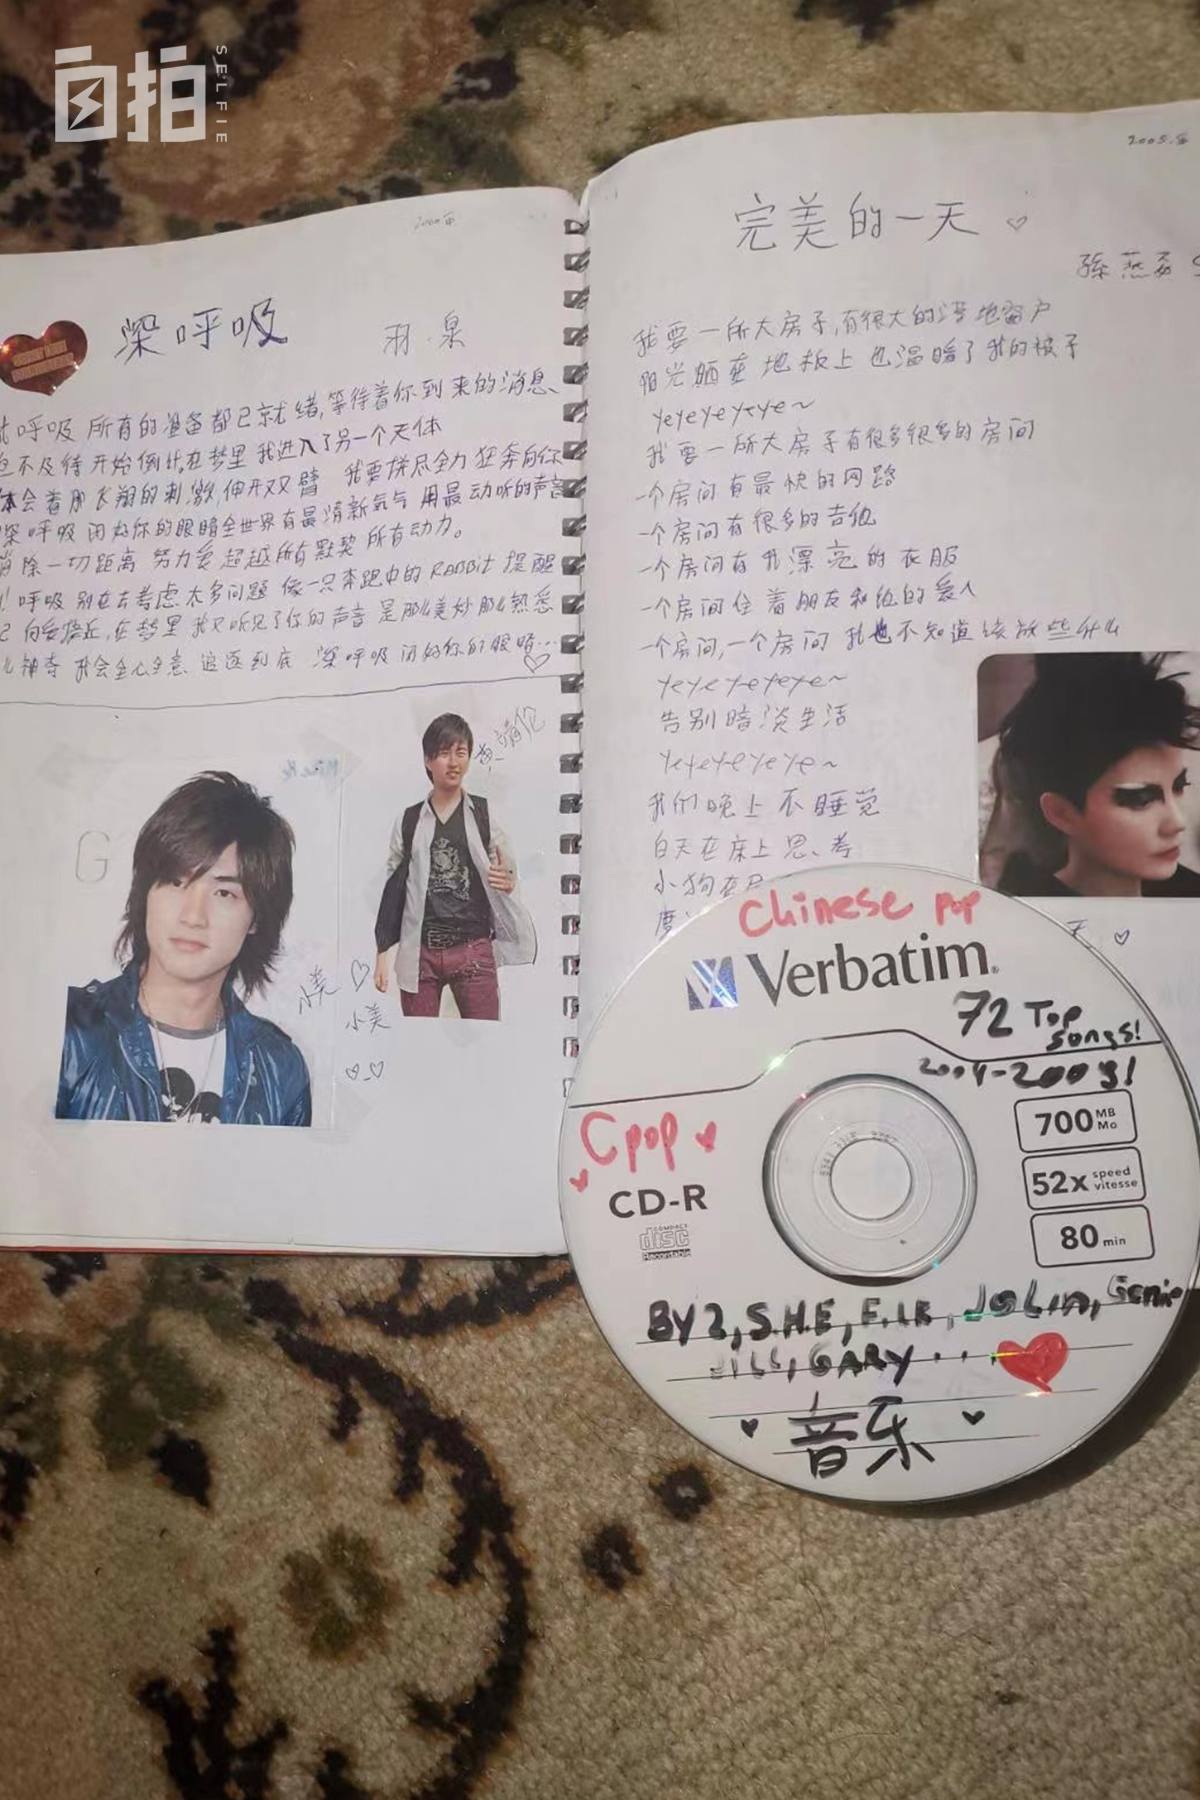 自拍
SELFIE
深呼吸
羽·泉
呼吸 所有的准备都已就绪,等待着你到来的消息、
不及待开始倒计,在梦里 我进入了另一个天体
体会着那飞翔的刺激,伸开双臂 我要拼尽全力 狂奔向你
深呼吸 闭好你的眼睛全世界有最清新氧气 用最动听的声音
消除一切距离 努力爱 超越所有默契 所有动力。
呼吸 别在去考虑太多问题 像一只奔跑中的 RABBit 提醒
向爱接近,在梦里 我又听见了你的声音 是那么美妙那么熟悉
神奇 我会全心全意 追逐到底 深呼吸 闭好你的眼睛…
G
Mike He
小美
黄靖伦
小美
完美的一天
孫燕姿
我要一所大房子,有很大的落地窗户
阳光晒在地板上 也温暖了我的被子
yeyeyeyeye~
我要一所大房子有很多很多的房间
一个房间有最快的网路
一个房间有很多的吉他
一个房间有我漂亮的衣服
一个房间住着朋友和他的爱人
一个房间,一个房间 我也不知道该放些什么
yeyeyeyeye~
告别暗淡生活
yeyeyeyeye~
我们晚上不睡觉
白天在床上思考
小狗在
Chinese pop
Verbatim
72 Top
songs!
2004-2009!
Cpop
CD-R
COMPACT
disc
Recordable
700 MB
Mo
52x speed
vitesse
80 min
BY2, S.H.E, F.I.R, JoLin, Genie
JILL, GARY...
音乐